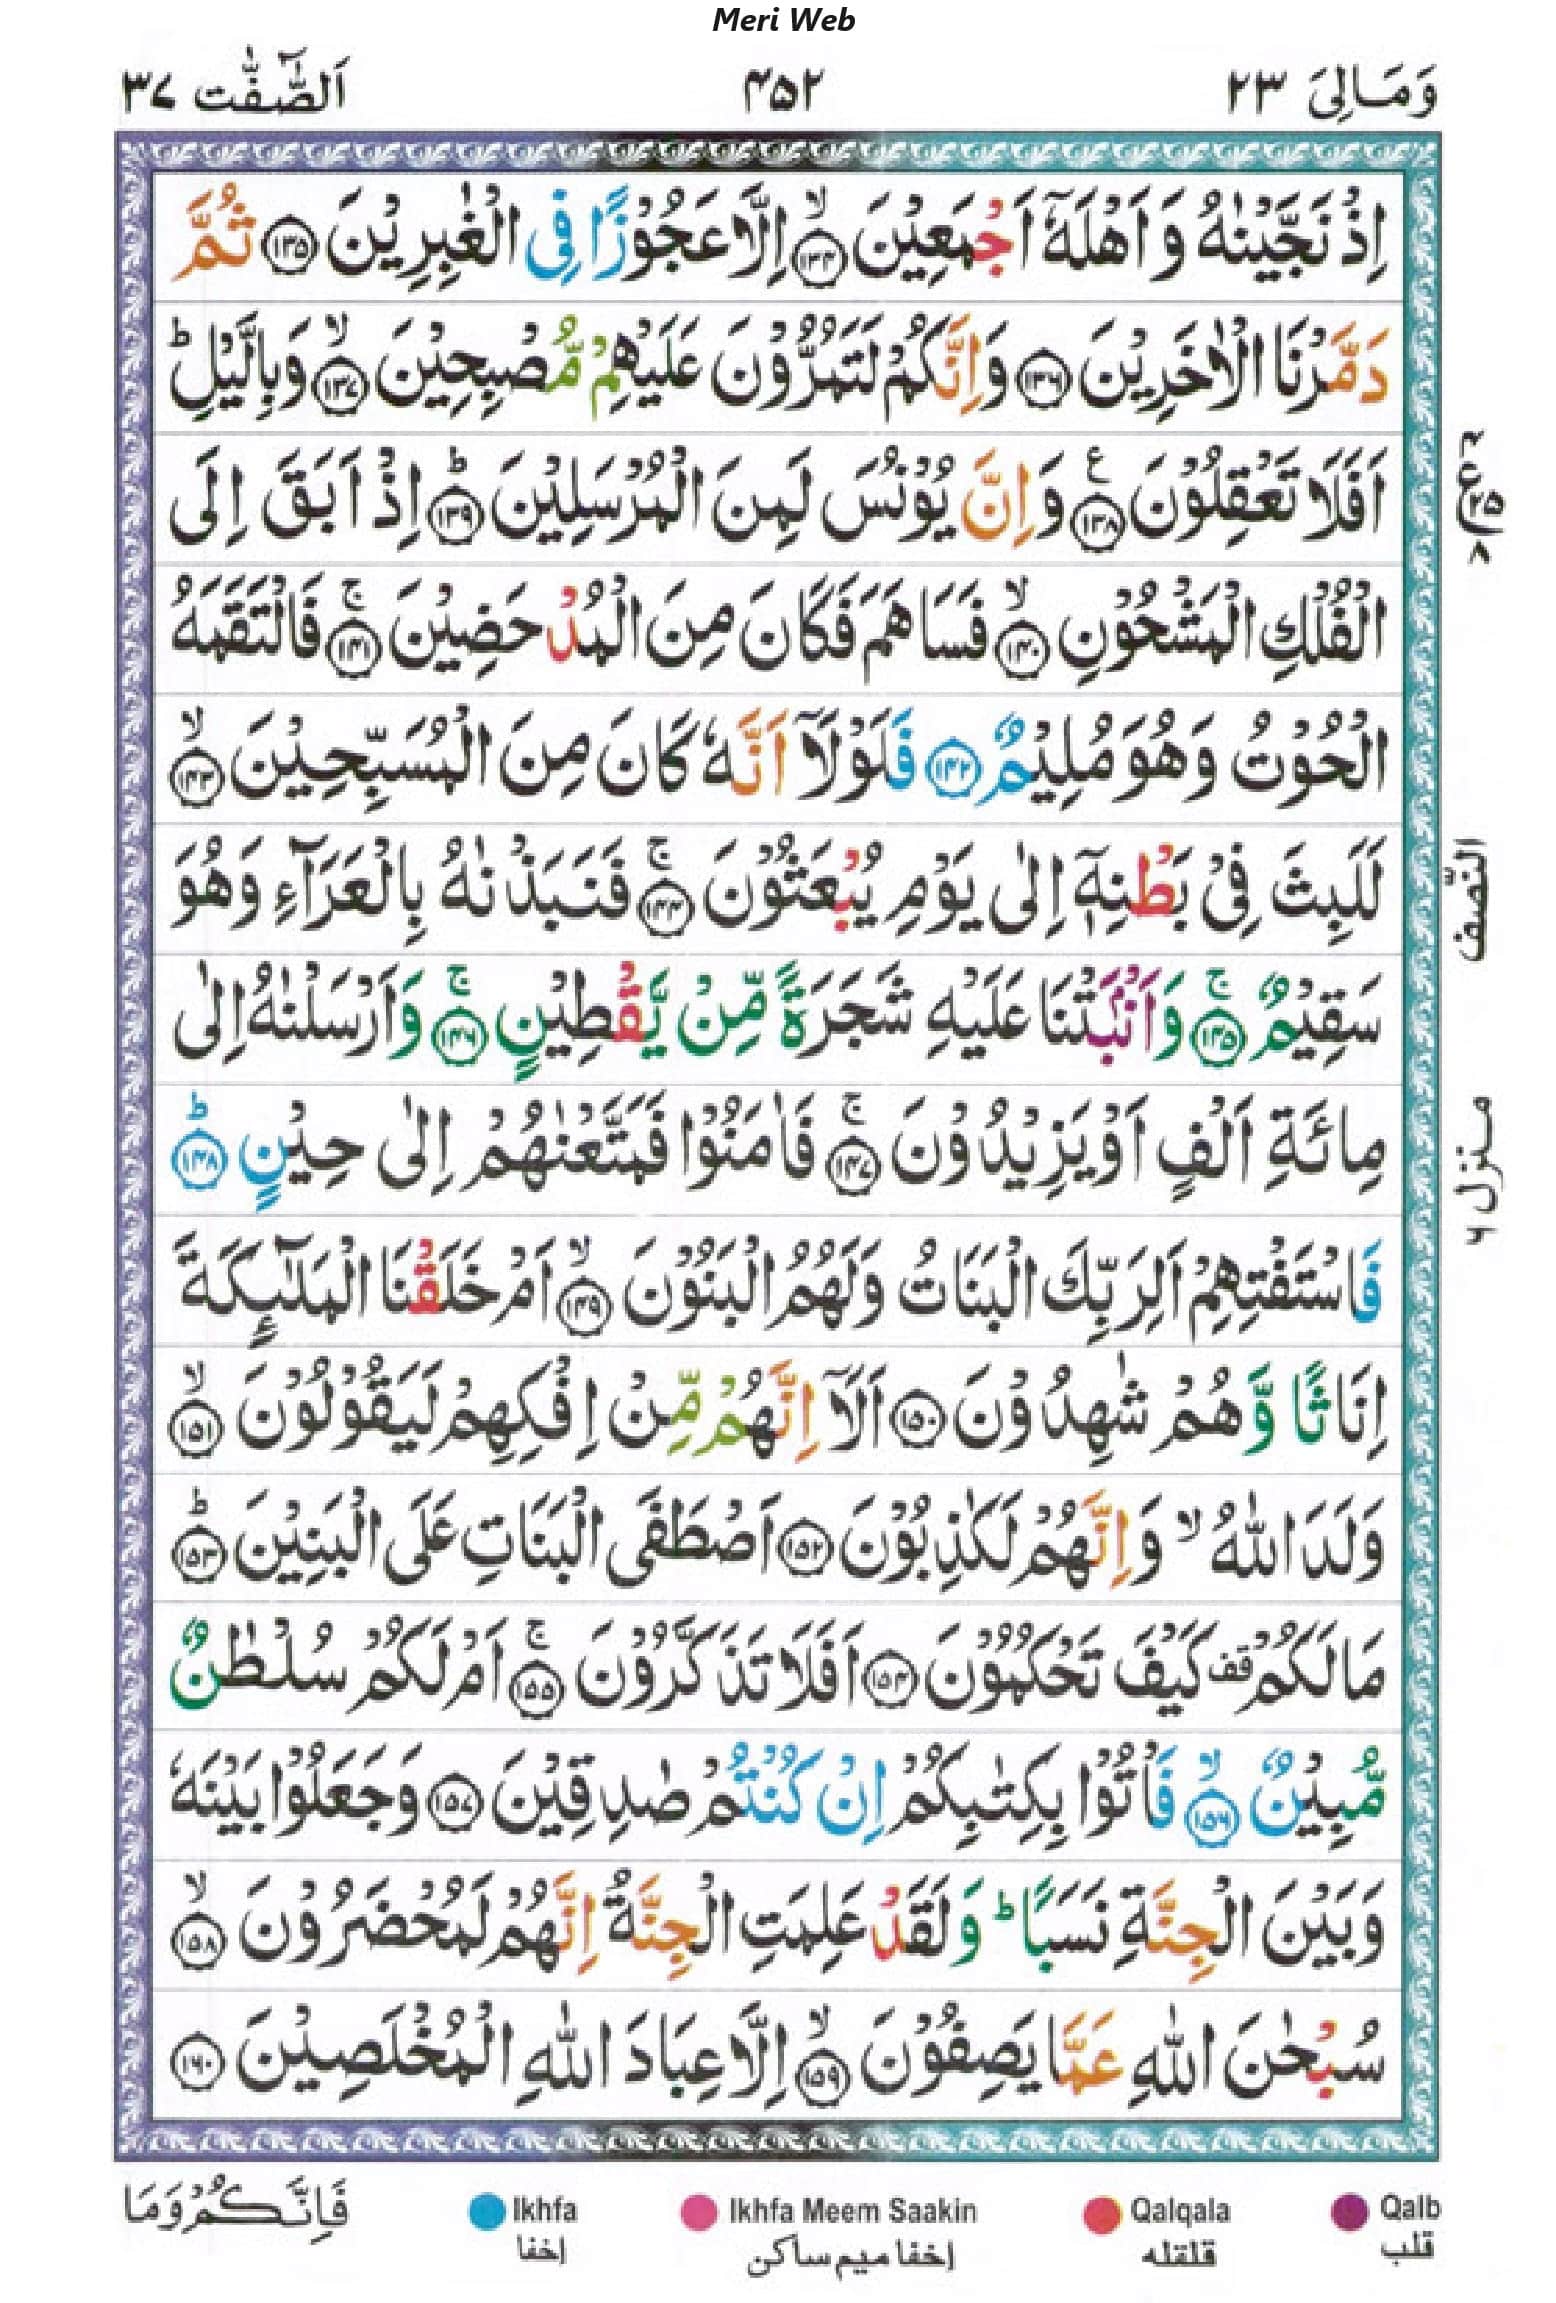 Meri Web
وَمَالِىَ ٢٣ ۴۵۲ اَلصّٰٓفّٰت ٣٧
اِذْ نَجَّيْنٰهُ وَ اَهْلَهٗۤ اَجْمَعِيْنَ ۙ‏﴿۱۳۴﴾ اِلَّا عَجُوْزًا فِى الْغٰبِرِيْنَ‏﴿۱۳۵﴾ ثُمَّ
دَمَّرْنَا الْاٰخَرِيْنَ‏﴿۱۳۶﴾ وَاِنَّكُمْ لَتَمُرُّوْنَ عَلَيْهِمْ مُّصْبِحِيْنَ ۙ‏﴿۱۳۷﴾ وَبِالَّيْلِ ؕ
اَفَلَا تَعْقِلُوْنَ ع‏﴿۱۳۸﴾ وَاِنَّ يُوْنُسَ لَمِنَ الْمُرْسَلِيْنَ ؕ‏﴿۱۳۹﴾ اِذْ اَبَقَ اِلَى
الْفُلْكِ الْمَشْحُوْنِ ۙ‏﴿۱۴۰﴾ فَسَاهَمَ فَكَانَ مِنَ الْمُدْحَضِيْنَ ۚ‏﴿۱۴۱﴾ فَالْتَقَمَهُ
الْحُوْتُ وَهُوَ مُلِيْمٌ‏﴿۱۴۲﴾ فَلَوْلَاۤ اَنَّهٗ كَانَ مِنَ الْمُسَبِّحِيْنَ ۙ‏﴿۱۴۳﴾
لَلَبِثَ فِىْ بَطْنِهٖۤ اِلٰى يَوْمِ يُبْعَثُوْنَ ۚ‏﴿۱۴۴﴾ فَنَبَذْنٰهُ بِالْعَرَآءِ وَهُوَ
سَقِيْمٌ ۚ‏﴿۱۴۵﴾ وَاَنْۢبَتْنَا عَلَيْهِ شَجَرَةً مِّنْ يَّقْطِيْنٍ ۚ‏﴿۱۴۶﴾ وَاَرْسَلْنٰهُ اِلٰى
مِائَةِ اَلْفٍ اَوْ يَزِيْدُوْنَ ۚ‏﴿۱۴۷﴾ فَاٰمَنُوْا فَمَتَّعْنٰهُمْ اِلٰى حِيْنٍ ؕ‏﴿۱۴۸﴾
فَاسْتَفْتِهِمْ اَلِرَبِّكَ الْبَنَاتُ وَلَهُمُ الْبَنُوْنَ ۙ‏﴿۱۴۹﴾ اَمْ خَلَقْنَا الْمَلٰٓٮِٕكَةَ
اِنَاثًا وَّهُمْ شٰهِدُوْنَ‏﴿۱۵۰﴾ اَلَاۤ اِنَّهُمْ مِّنْ اِفْكِهِمْ لَيَقُوْلُوْنَ ۙ‏﴿۱۵۱﴾
وَلَدَ اللّٰهُ ۙ وَاِنَّهُمْ لَكٰذِبُوْنَ‏﴿۱۵۲﴾ اَصْطَفَى الْبَنَاتِ عَلَى الْبَنِيْنَ ؕ‏﴿۱۵۳﴾
مَا لَكُمْ قف كَيْفَ تَحْكُمُوْنَ‏﴿۱۵۴﴾ اَفَلَا تَذَكَّرُوْنَ ۚ‏﴿۱۵۵﴾ اَمْ لَكُمْ سُلْطٰنٌ
مُّبِيْنٌ ۙ‏﴿۱۵۶﴾ فَاْتُوْا بِكِتٰبِكُمْ اِنْ كُنْتُمْ صٰدِقِيْنَ‏﴿۱۵۷﴾ وَجَعَلُوْا بَيْنَهٗ
وَبَيْنَ الْجِنَّةِ نَسَبًا ؕ وَلَقَدْ عَلِمَتِ الْجِنَّةُ اِنَّهُمْ لَمُحْضَرُوْنَ ۙ‏﴿۱۵۸﴾
سُبْحٰنَ اللّٰهِ عَمَّا يَصِفُوْنَ ۙ‏﴿۱۵۹﴾ اِلَّا عِبَادَ اللّٰهِ الْمُخْلَصِيْنَ‏﴿۱۶۰﴾
ع
النّصف
منزل ۶
Qalb Qalqala Ikhfa Meem Saakin Ikhfa فَاِنَّكُمْ وَمَا
قلب قلقله إخفا ميم ساكن إخفا